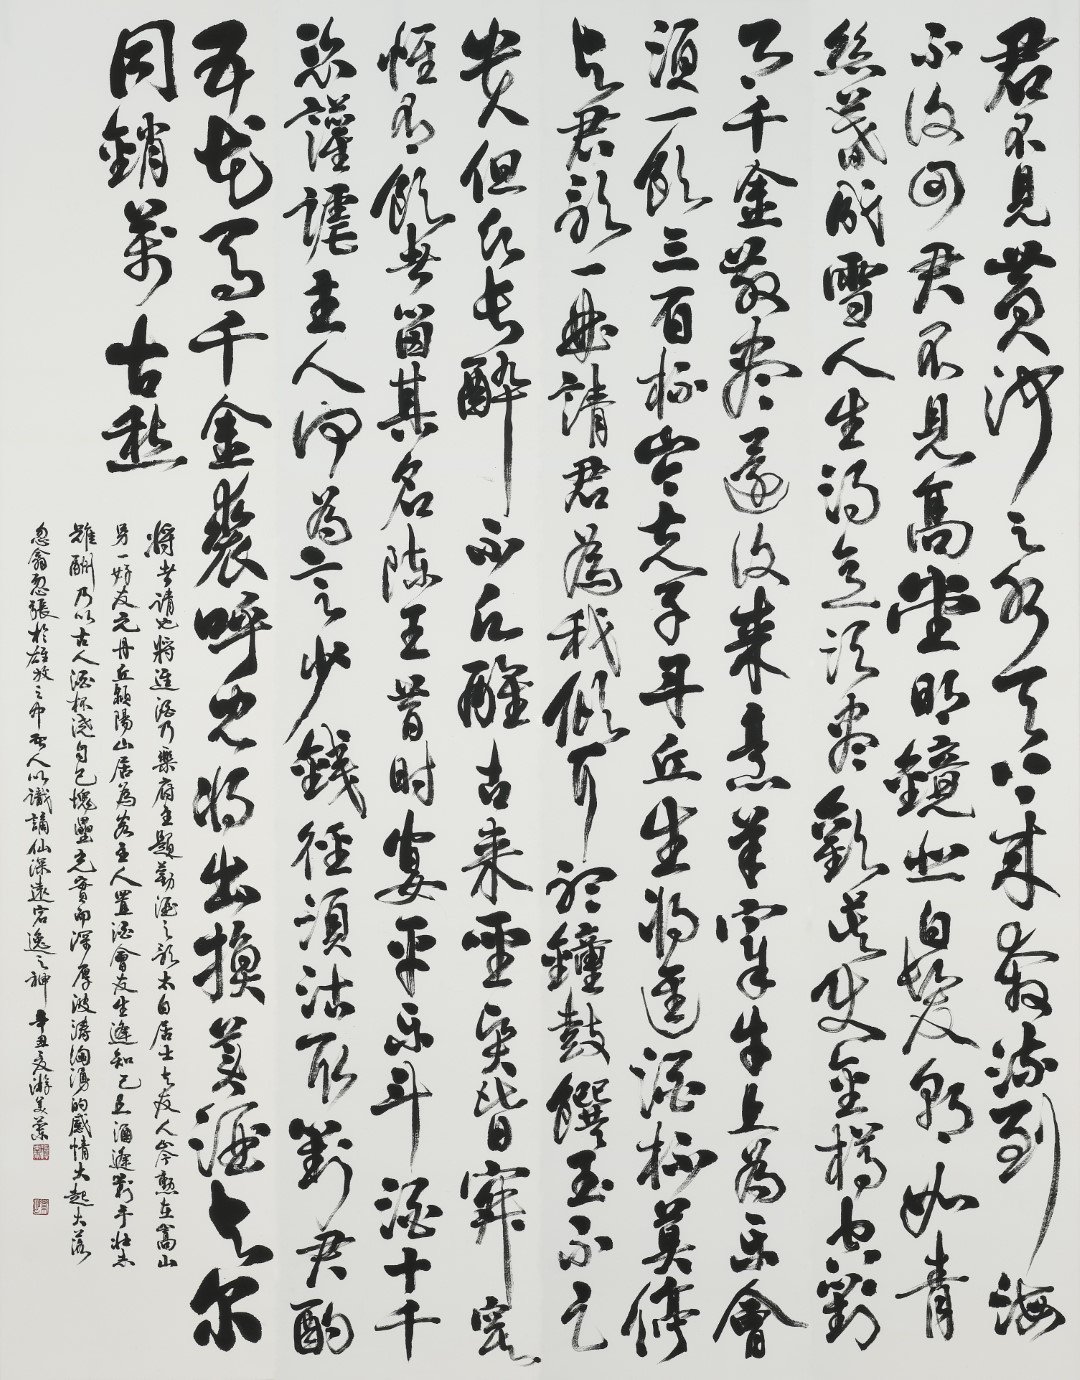 君不見黃河之水天上来奔流到海
不復回君不見高堂明鏡悲白髮朝如青
絲暮成雪人生得意須盡歡莫使金樽空對
月千金散盡還復来烹羊宰牛且為樂會
須一飲三百杯岑夫子丹丘生将進酒杯莫停
与君歌一曲請君為我傾耳聽鐘鼓饌玉不足
貴但願長醉不願醒古来聖賢皆寂寞
惟有飲者留其名陳王昔時宴平樂斗酒十千
恣讙謔主人何為言少錢徑須沽取對君酌
五花馬千金裘呼兒将出換美酒与尔
同銷萬古愁
将者請也將進酒乃樂府主題勸酒之歌太白居士与友人岑勛在嵩山
另一好友元丹丘潁陽山居為客主人置酒會友生逢知己且酒逢對手壯志
難酬乃以古人酒杯澆自己塊壘充實而深厚波濤洶湧的感情大起大落
忽翕忽張於雄放之中人以識謫仙深遠宕逸之神 辛丑夏游美